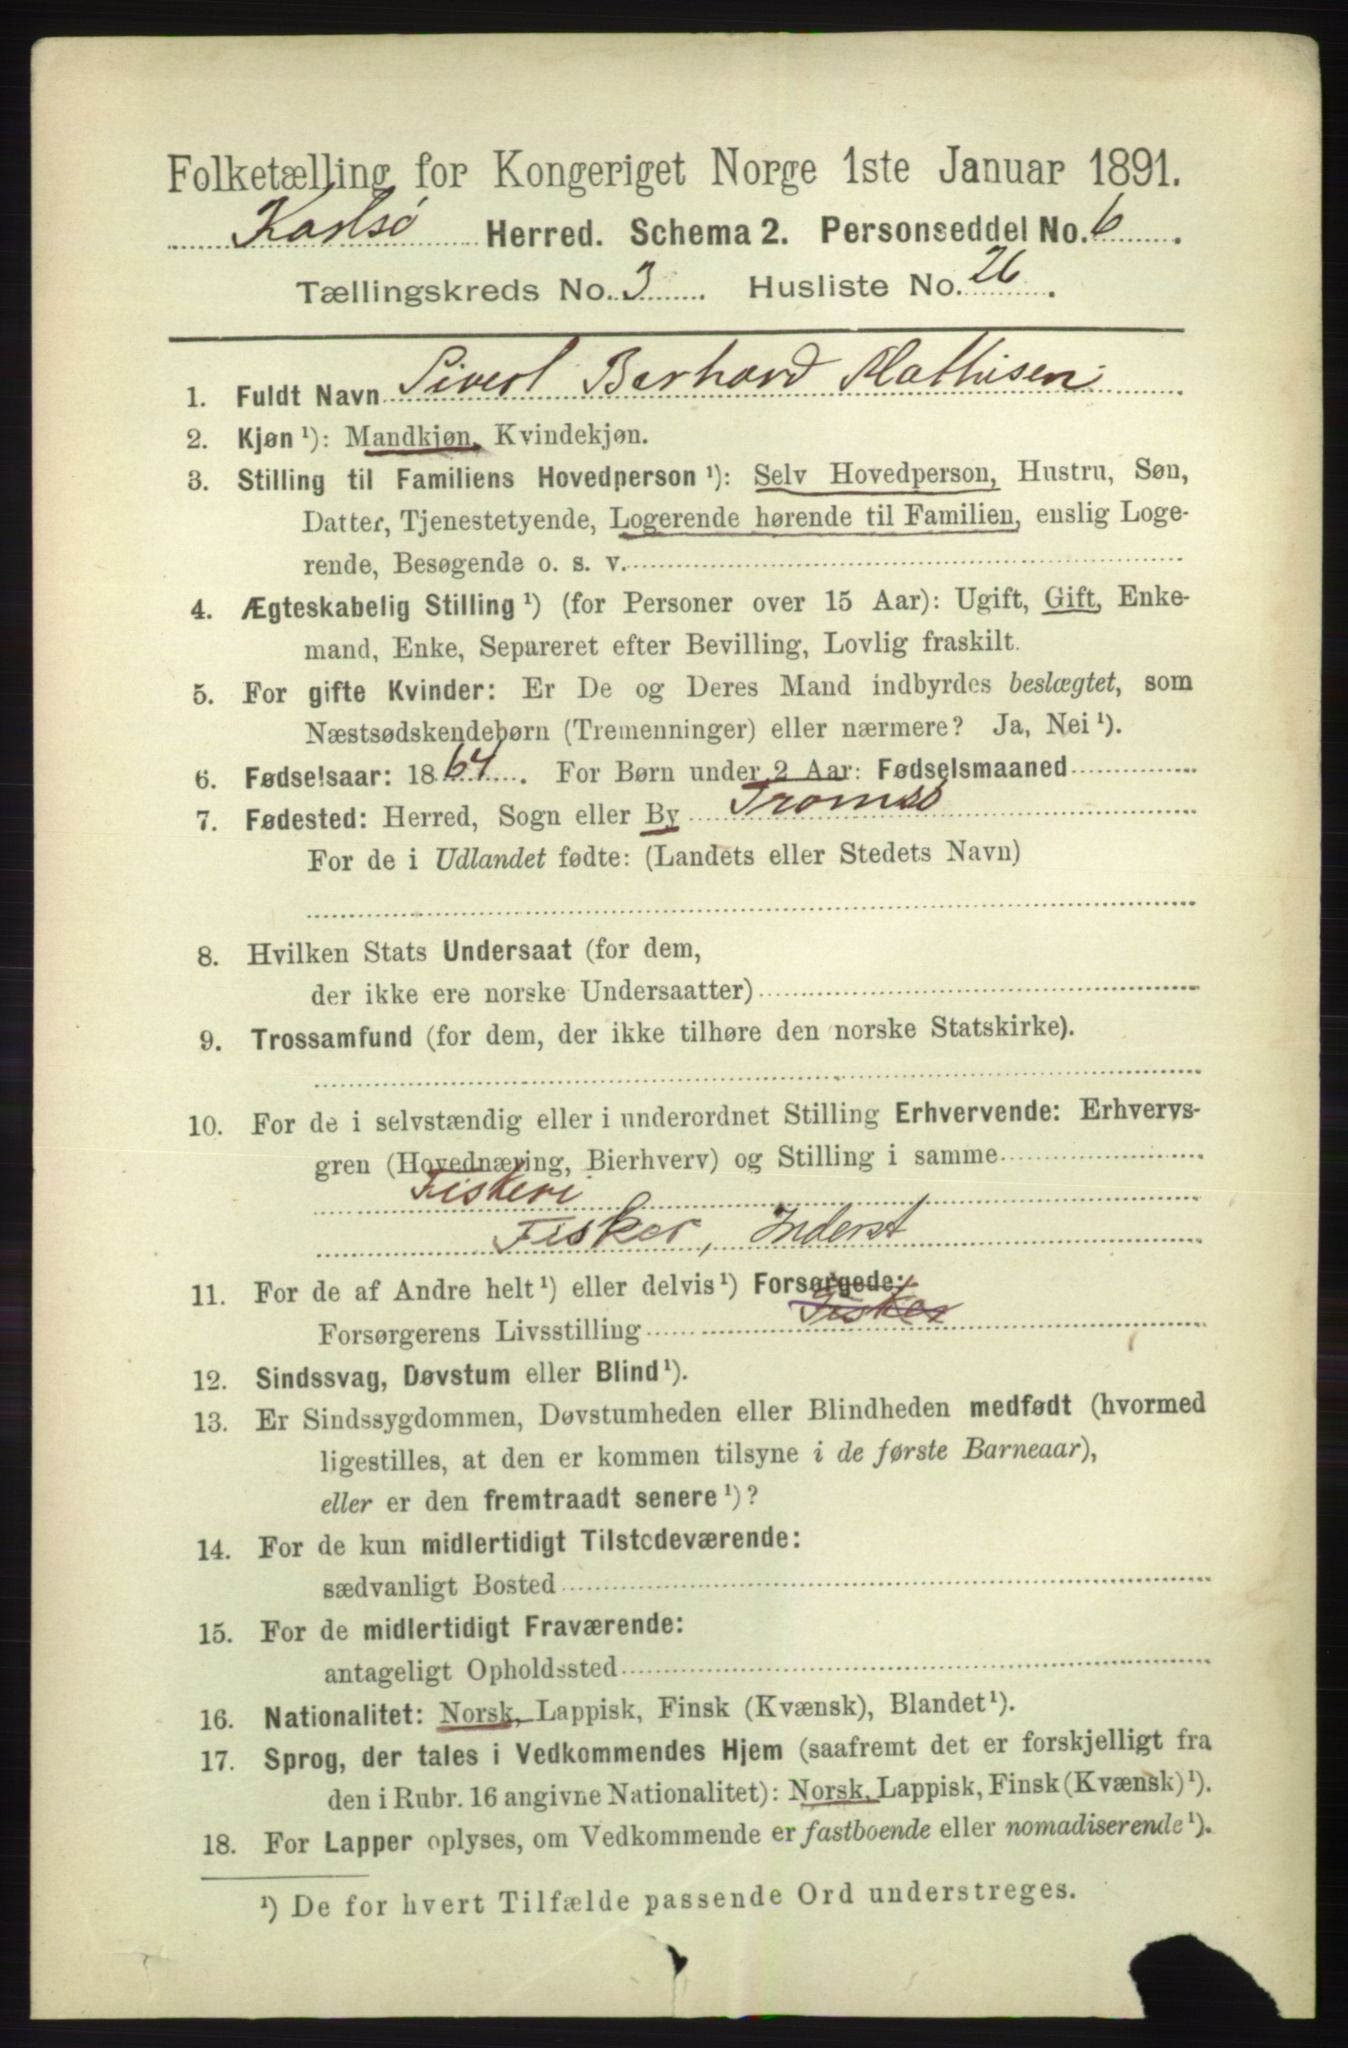 Folketælling for Kongeriget Norge 1ste Januar 1891.
Karlsø Herred. Schema 2. Personseddel No. 6.
Tællingskreds No. 3. Husliste No. 26.
1. Fuldt Navn Sivert Berhard Mathisen
2. Kjøn ¹): Mandkjøn, Kvindekjøn.
3. Stilling til Familiens Hovedperson ¹): Selv Hovedperson, Hustru, Søn,
Datter, Tjenestetyende, Logerende hørende til Familien, enslig Loge-
rende, Besøgende o. s. v.
4. Ægteskabelig Stilling ¹) (for Personer over 15 Aar): Ugift, Gift, Enke-
mand, Enke, Separeret efter Bevilling, Lovlig fraskilt.
5. For gifte Kvinder: Er De og Deres Mand indbyrdes beslægtet, som
Næstsødskendebørn (Tremenninger) eller nærmere? Ja, Nei ¹).
6. Fødselsaar: 1864. For Børn under 2 Aar: Fødselsmaaned
7. Fødested: Herred, Sogn eller By Tromsø
For de i Udlandet fødte: (Landets eller Stedets Navn)
8. Hvilken Stats Undersaat (for dem,
der ikke ere norske Undersaatter)
9. Trossamfund (for dem, der ikke tilhøre den norske Statskirke).
10. For de i selvstændig eller i underordnet Stilling Erhvervende: Erhvervs-
gren (Hovednæring, Bierhverv) og Stilling i samme
Fiskeri
Fisker, Inderst
11. For de af Andre helt ¹) eller delvis ¹) Forsørgede:
Forsørgerens Livsstilling Fisker
12. Sindssvag, Døvstum eller Blind ¹).
13. Er Sindssygdommen, Døvstumheden eller Blindheden medfødt (hvormed
ligestilles, at den er kommen tilsyne i de første Barneaar),
eller er den fremtraadt senere ¹)?
14. For de kun midlertidigt Tilstedeværende:
sædvanligt Bosted
15. For de midlertidigt Fraværende:
antageligt Opholdssted
16. Nationalitet: Norsk, Lappisk, Finsk (Kvænsk), Blandet ¹).
17. Sprog, der tales i Vedkommendes Hjem (saafremt det er forskjelligt fra
den i Rubr. 16 angivne Nationalitet): Norsk, Lappisk, Finsk (Kvænsk) ¹).
18. For Lapper oplyses, om Vedkommende er fastboende eller nomadiserende ¹).
¹) De for hvert Tilfælde passende Ord understreges.